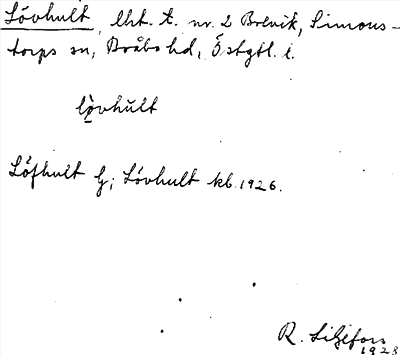 Lövhult, lht. t. nr. 2 Brevik, Simons-
torps sn, Bråbo hd, Östgtl. l.
lö̀vhŭlt
Löfhult G; Lövhult kb. 1926.
R. Liljefors
1928